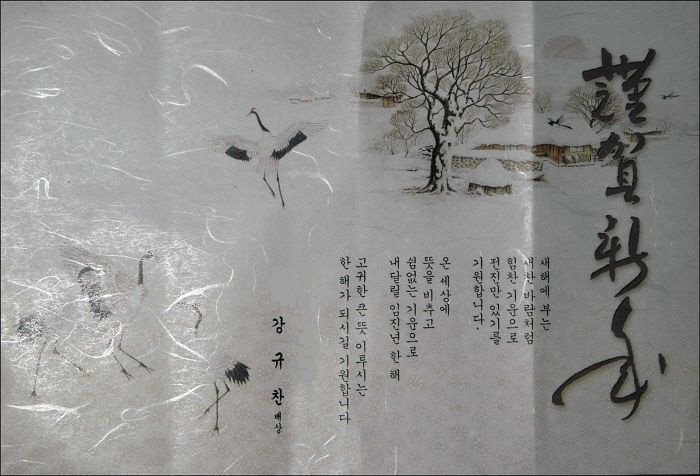 謹賀新年
새해에 부는
세찬 바람처럼
힘찬 기운으로
전진만 있기를
기원합니다.
온 세상에
뜻을 비추고
쉼없는 기운으로
내달릴 임진년 한 해
고귀한 큰 뜻 이루시는
한 해가 되시길 기원합니다
강규찬 배상